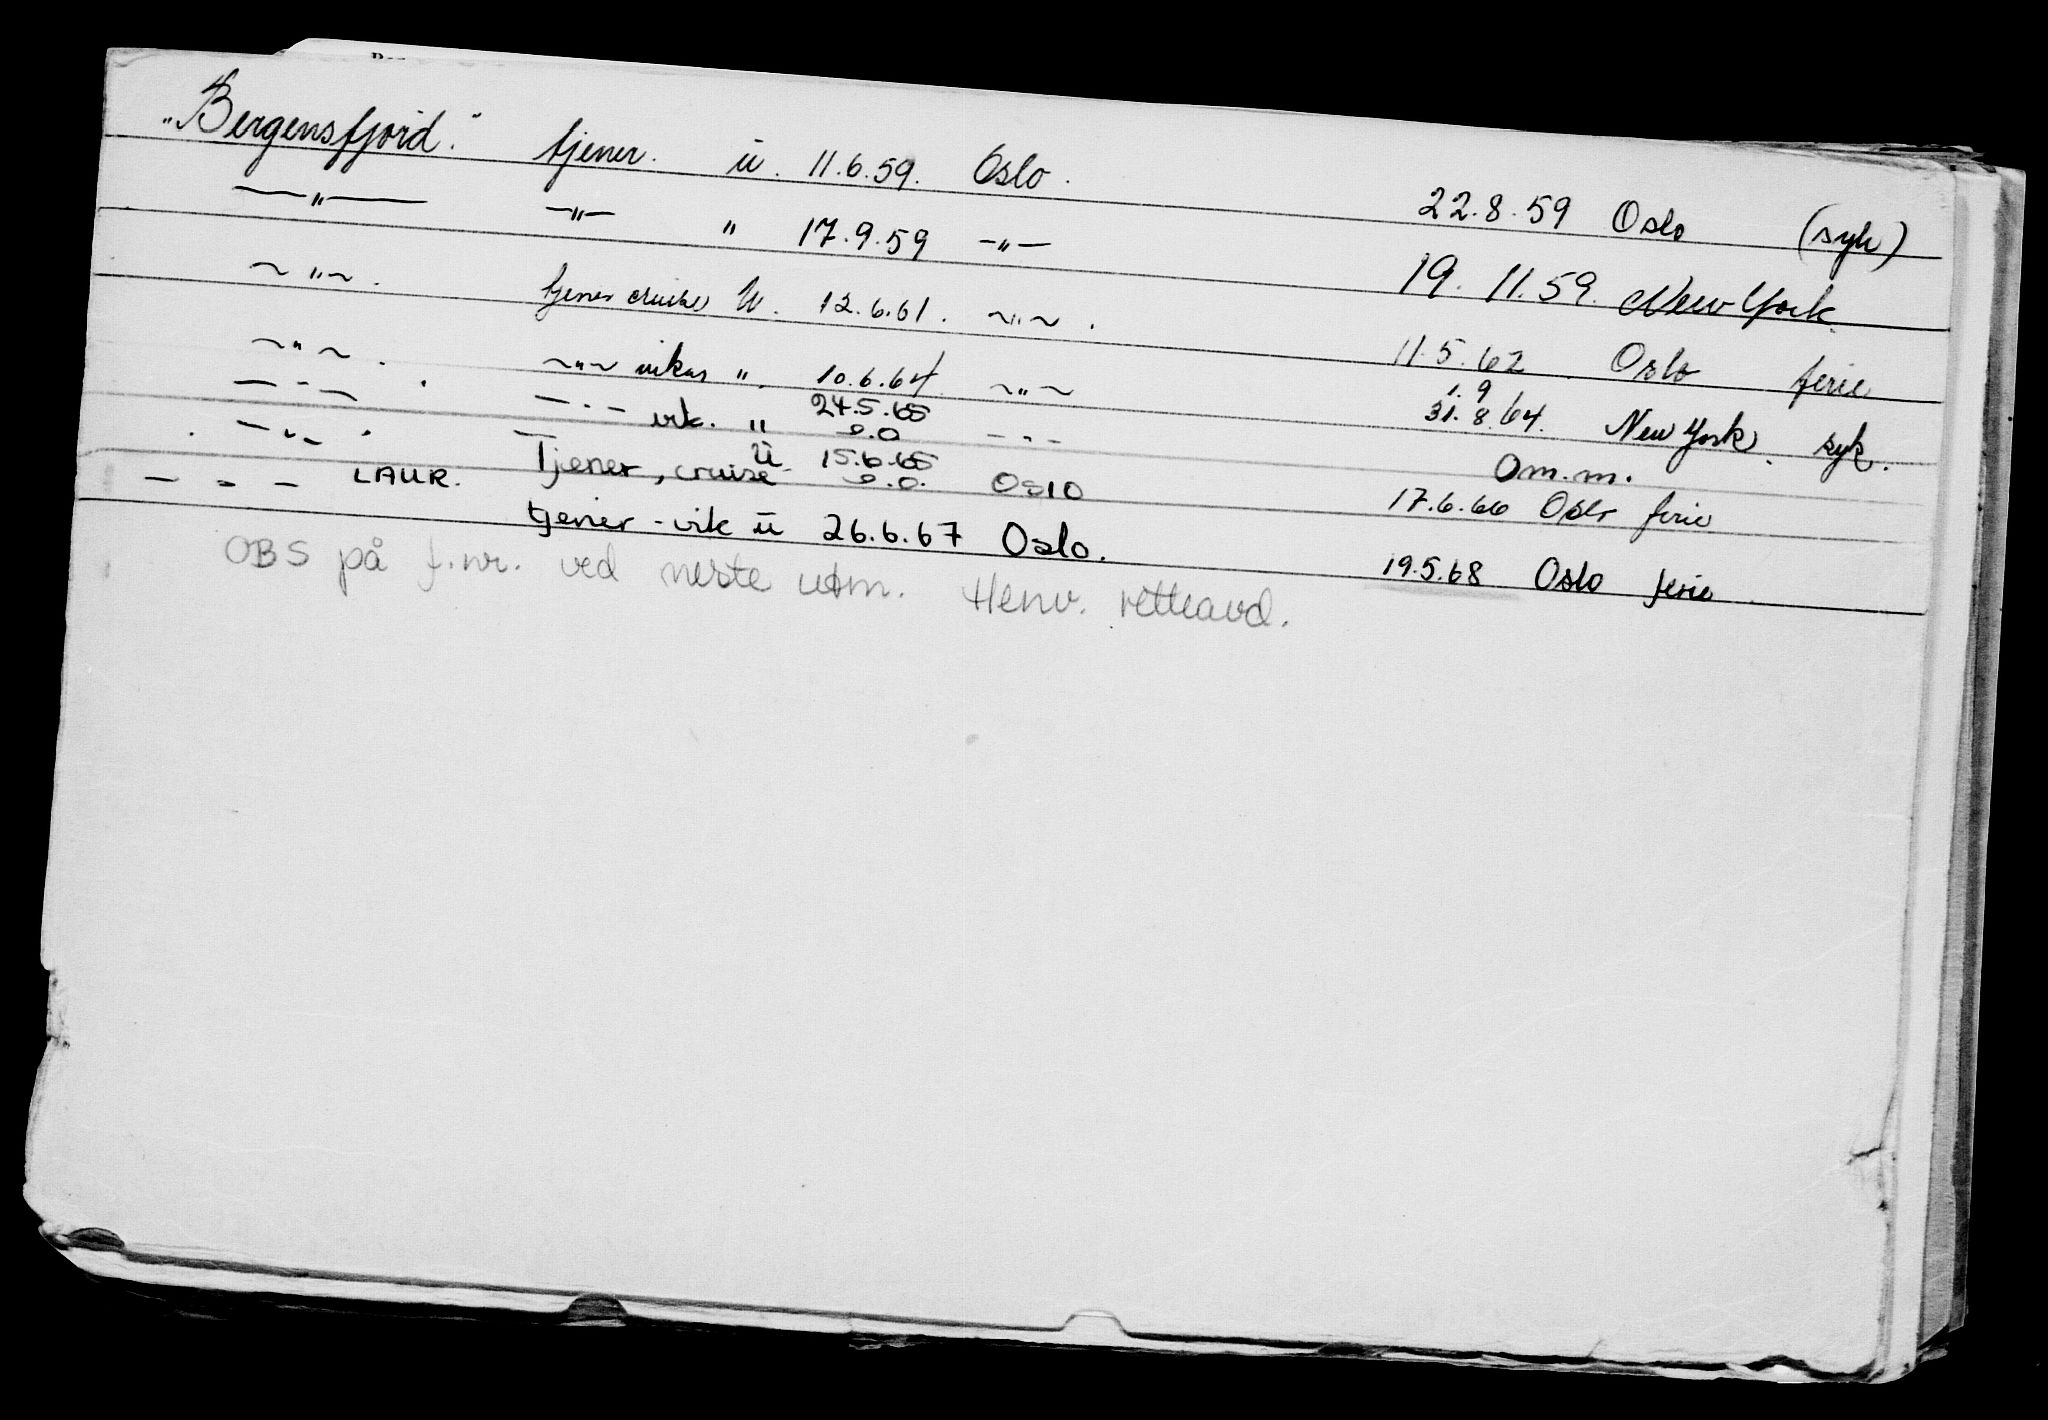 "Bergensfjord." tjener. ü. 11.6.59. Oslo. 22.8.59 Oslo (syk)
—"— —"— " 17.9.59 —"— 19.11.59. New York.
~"~. tjener cruise ü. 12.6.61. ~"~. 11.5.62 Oslo ferie
~"~. ~"~ vikar ". 10.6.64. ~"~ 1.9 31.8.64. New York. syk.
—"— —"— vik. " 24.5.65 e.o —"— Om.m.
—"— Tjener, cruise ü 15.6.65 e.o. Oslo 17.6.66 Oslo ferie
—"— LAUR. tjener - vik ü 26.6.67 Oslo. 19.5.68 Oslo ferie
OBS på f.nr. ved neste utm. Henv. retteavd.